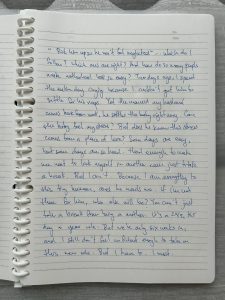 " But him up so he won't feel neglected" - which do I
follow? which ones are right? And how do so many people
make motherhood look so easy? Two days ago I spent
the entire day crying because I couldn't get him to
settle for his naps. Yet the moment my husband
comes home from work, he settles the baby right away. Can
my baby feel my stress? But does he know this stress
comes from a place of love? Some days are easy,
but some days are so hard. Hard enough to make
me want to lock myself in another room just to take
a break. But I can't. Because I am everything to
this tiny human, and he needs me. If I'm not
there for him, who else will be? You can't just
take a break from being a mother. It's a 24hr, 365
day a year role. But we're only six weeks in,
and I still don't feel confident enough to take on
this new role. But I have to. I must